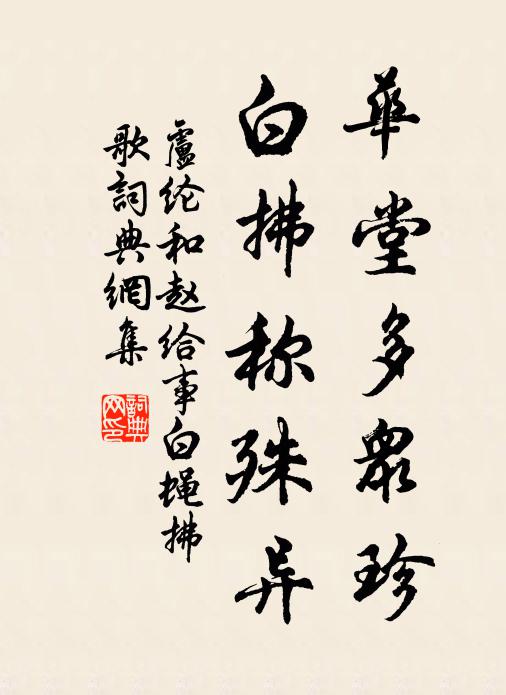 華堂多衆珍
白拂称殊异
盧纶和赵给事白蝇拂
歌詞典網集
詞典
网印